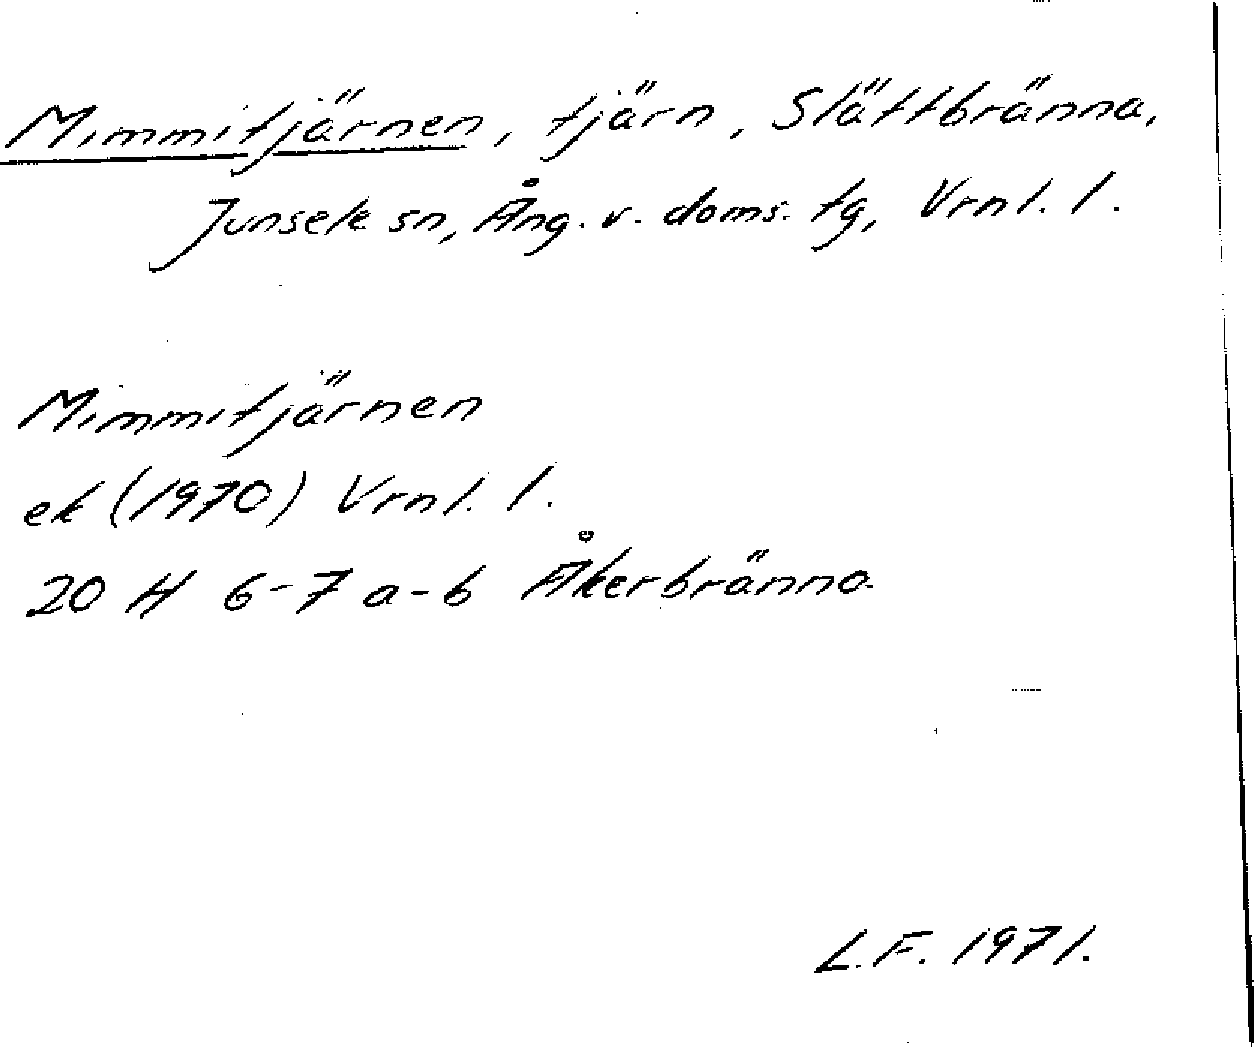 Mimmitjärnen, tjärn, Slättbränna,
Junsele sn, Ång. v. doms. tg, Vrnl. l.
Mimmitjärnen
ek (1970) Vrnl. l.
20 H 6-7 a-b Åkerbränna
L.F. 1971.